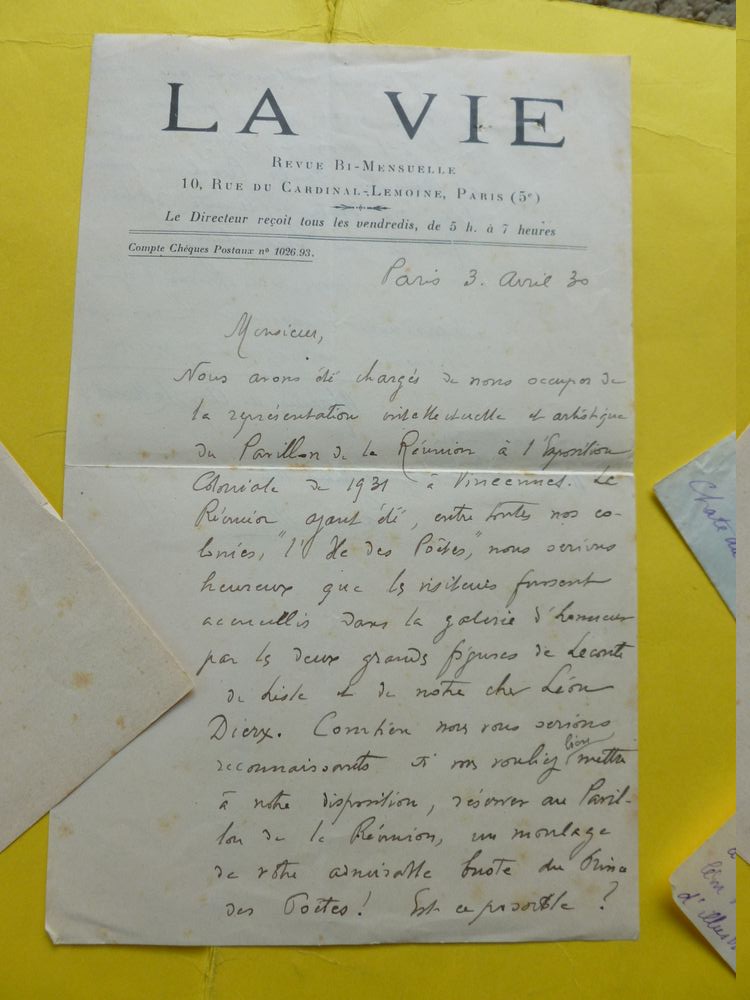 LA VIE
REVUE BI-MENSUELLE
10, RUE DU CARDINAL-LEMOINE, PARIS (5e)
Le Directeur reçoit tous les vendredis, de 5 h. à 7 heures
Compte Chèques Postaux nº 1026.93.
Paris 3. Avril 30
Monsieur,
Nous avons été chargés de nous occuper de
la représentation intellectuelle et artistique
du Pavillon de la Réunion à l'Exposition
Coloniale de 1931 à Vincennes. La
Réunion ayant été, entre toutes nos co-
lonies, "l'Ile des Poètes," nous serions
heureux que les visiteurs fussent
accueillis dans la galerie d'honneur
par les deux grandes figures de Leconte
de Lisle et de notre cher Léon
Dierx. Combien nous vous serions
reconnaissants si vous vouliez bien mettre
à notre disposition, réserver au Pavil-
lon de la Réunion, un moulage
de votre admirable buste du Prince
des Poètes! Est ce possible ?
Chateau
d'illus